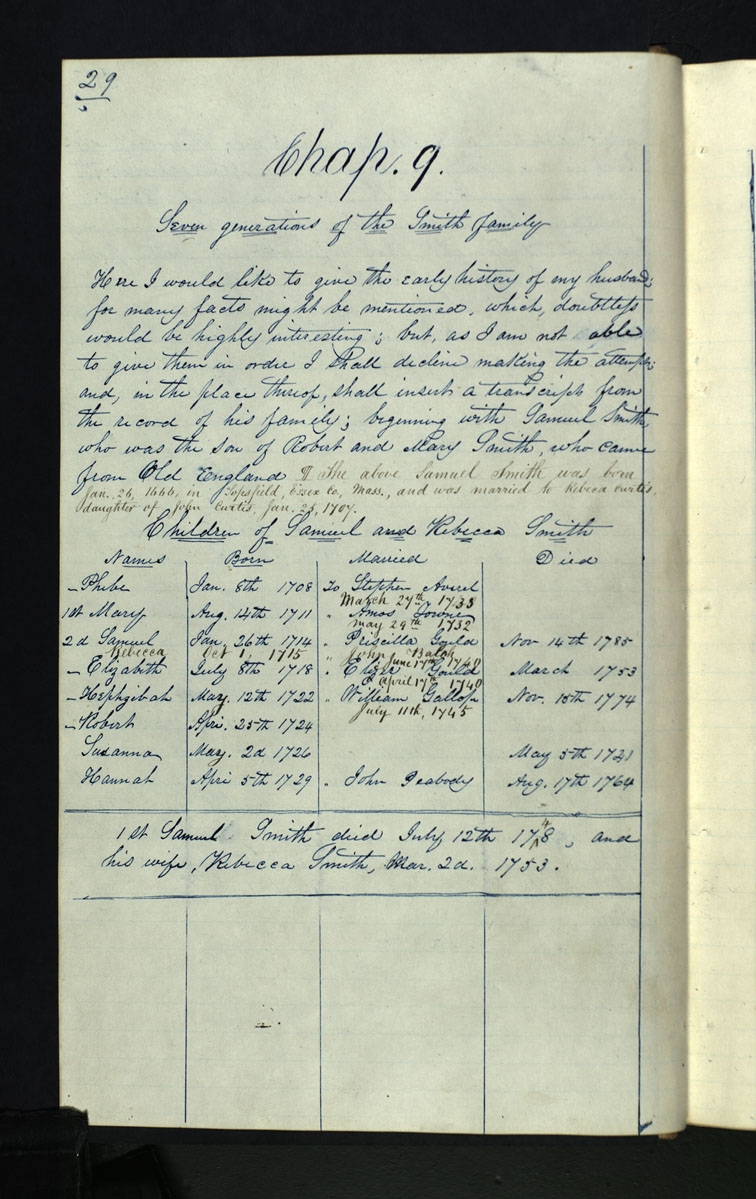 29
Chap. 9.
Seven generations of the Smith family
Here I would like to give the early history of my husband;
for many facts might be mentioned, which, doubtless
would be highly interesting; but, as I am not able
to give them in order I shall decline making the attempt;
and, in the place thereof, shall insert a transcript from
the record of his family; beginning with Samuel Smith,
who was the son of Robert and Mary Smith, who came
from Old England ¶ The above Samuel Smith was born
Jan. 26, 1666, in Topsfield, Essex Co, Mass., and was married to Rebecca Curtis,
daughter of John Curtis, Jan. 25, 1707.
Children of Samuel and Rebecca Smith
Names Born Married Died
– Phebe Jan. 8th 1708 To Stephen Averel
March 27th 1733
1st Mary Aug. 14th 1711 " Amos Towne
May 29th 1732
2d Samuel Jan. 26th 1714 " Priscilla Gould Nov 14th 1785
Rebecca Oct 1, 1715 " John Balch
June 17th 1740
– Elizabeth July 8th 1718 " Eliezer Gould March 1753
April 17th 1740
– Hephzibah May. 12th 1722 " William Gallop Nov. 15th 1774
July 11th, 1745
– Robert Apri. 25th 1724
Susanna May. 2d 1726 May 5th 1741
Hannah Apri 5th 1729 " John Peabody Aug. 17th 1764
1st Samuel Smith died July 12th 1748, and
his wife, Rebecca Smith, Mar. 2d. 1753.